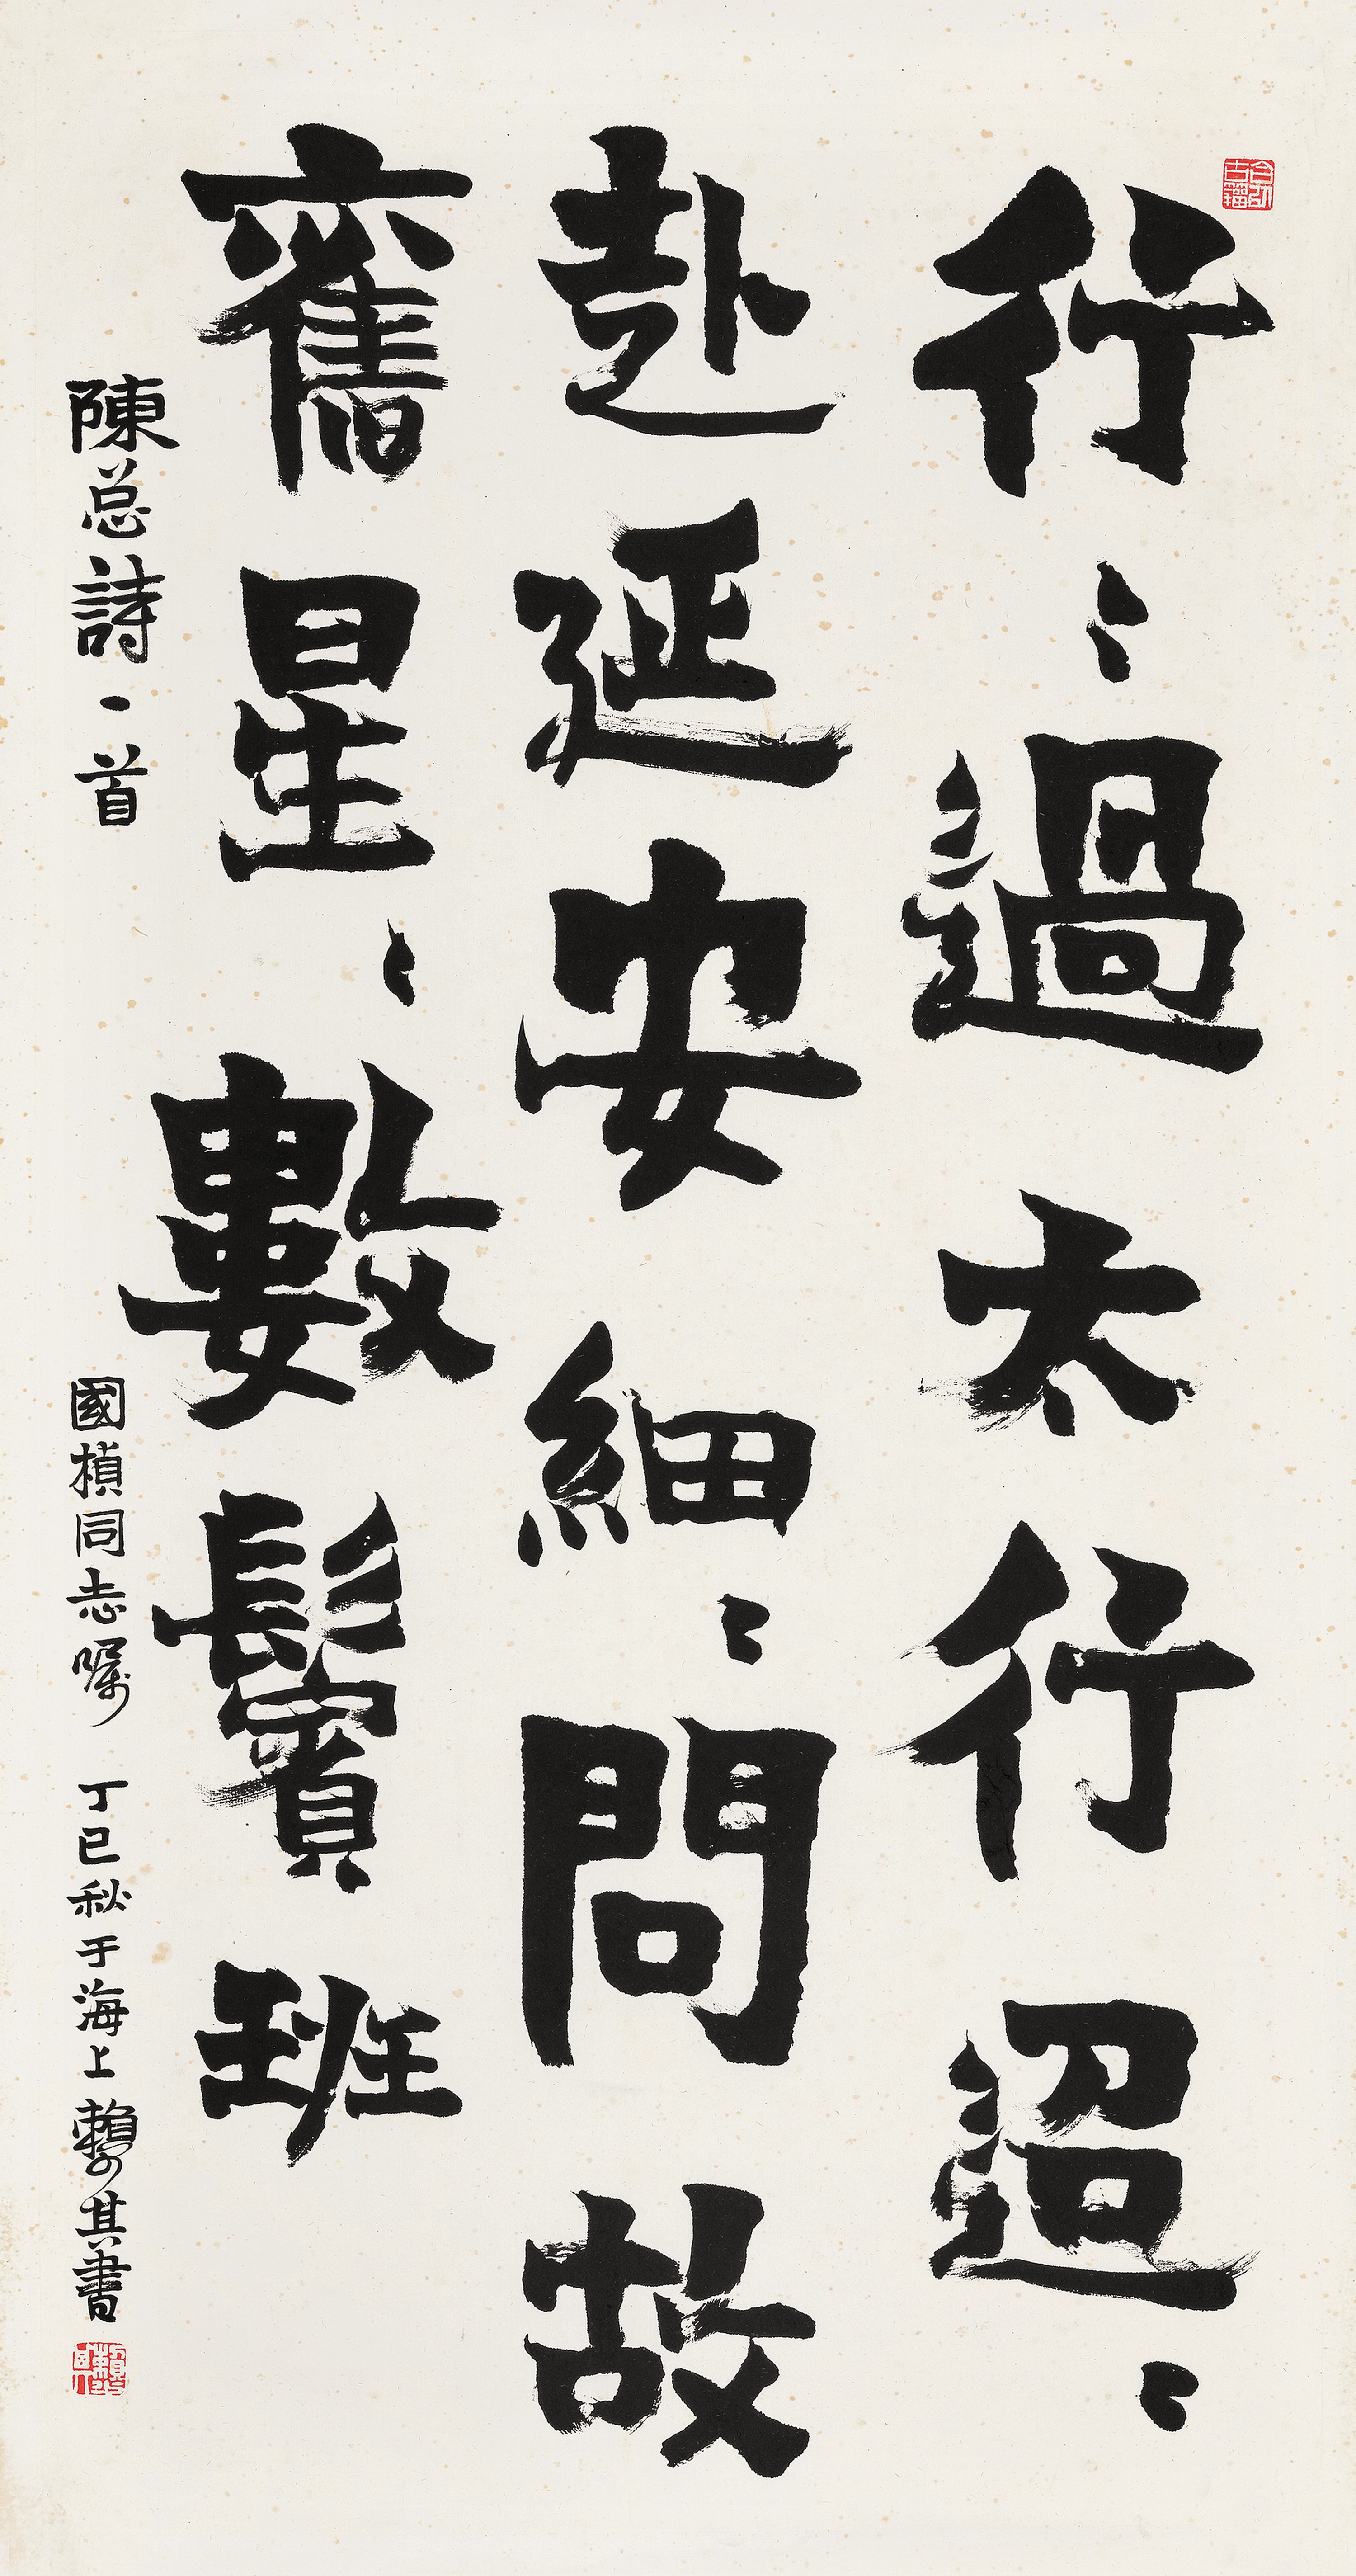 行〻過太行迢〻
赴延安細〻問故
舊星〻數鬢班
陳总詩一首 國楨同志嘱 丁巳秋于海上賴少其書